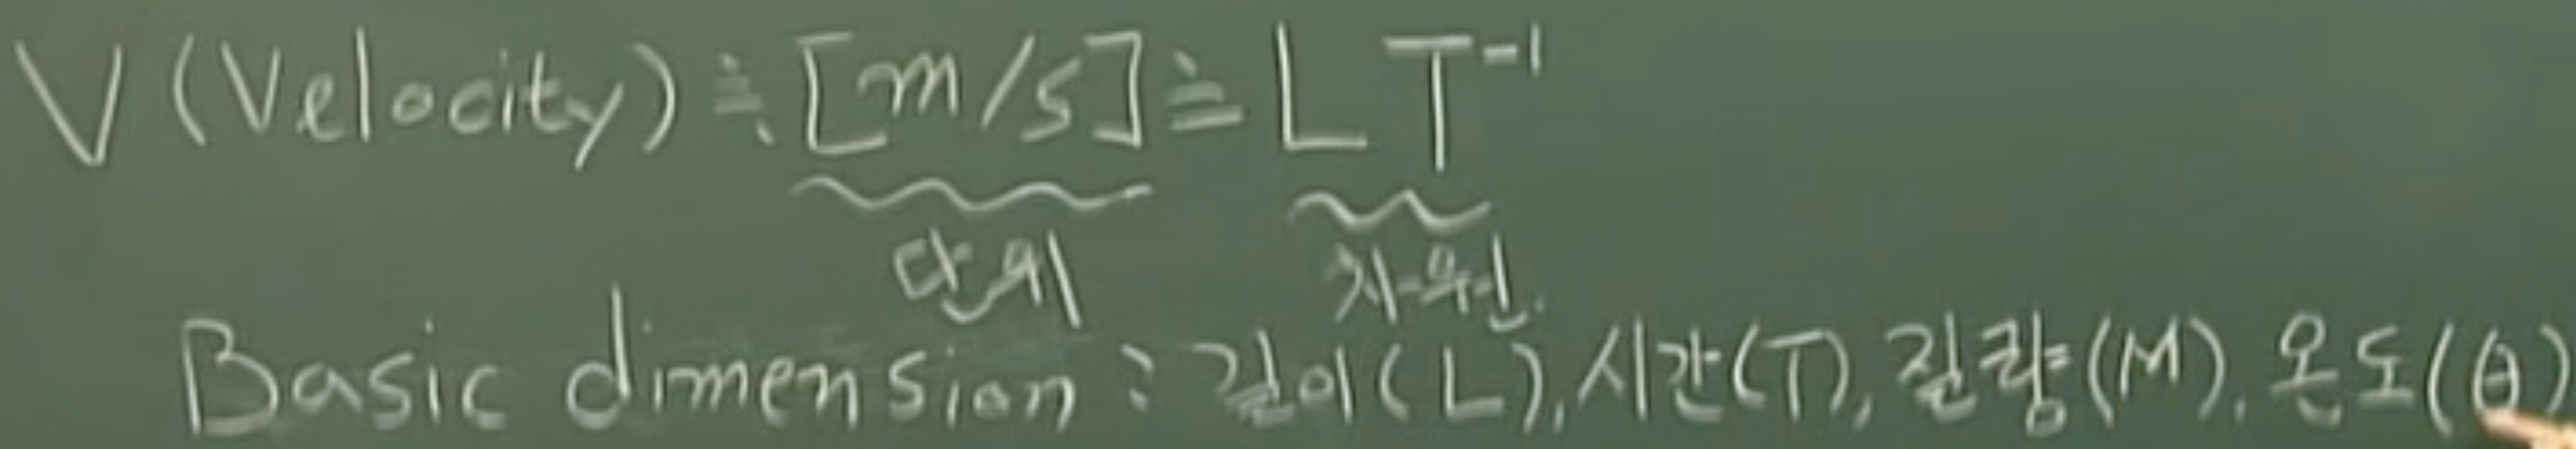 V (Velocity) ≐ [m/s] ≐ L T⁻¹
단위 차원.
Basic dimension : 길이(L), 시간(T), 질량(M), 온도(θ)